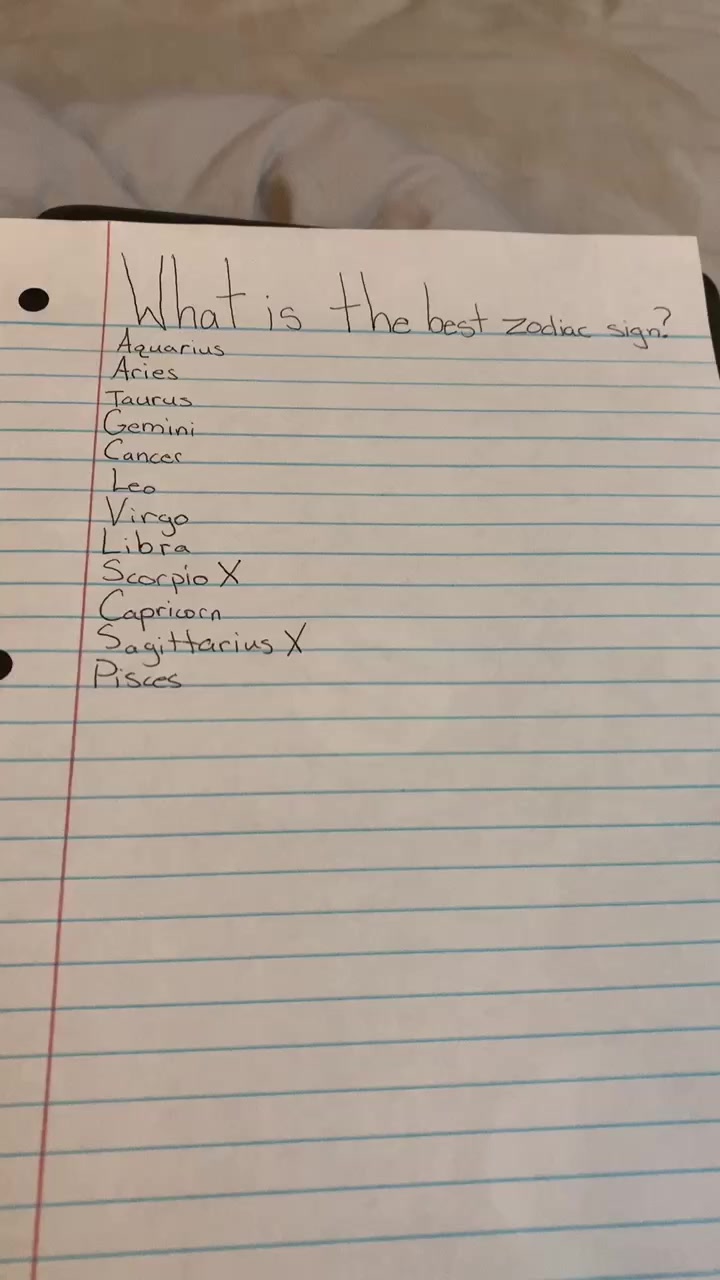 What is the best zodiac sign?
Aquarius
Aries
Taurus
Gemini
Cancer
Leo
Virgo
Libra
Scorpio X
Capricorn
Sagittarius X
Pisces